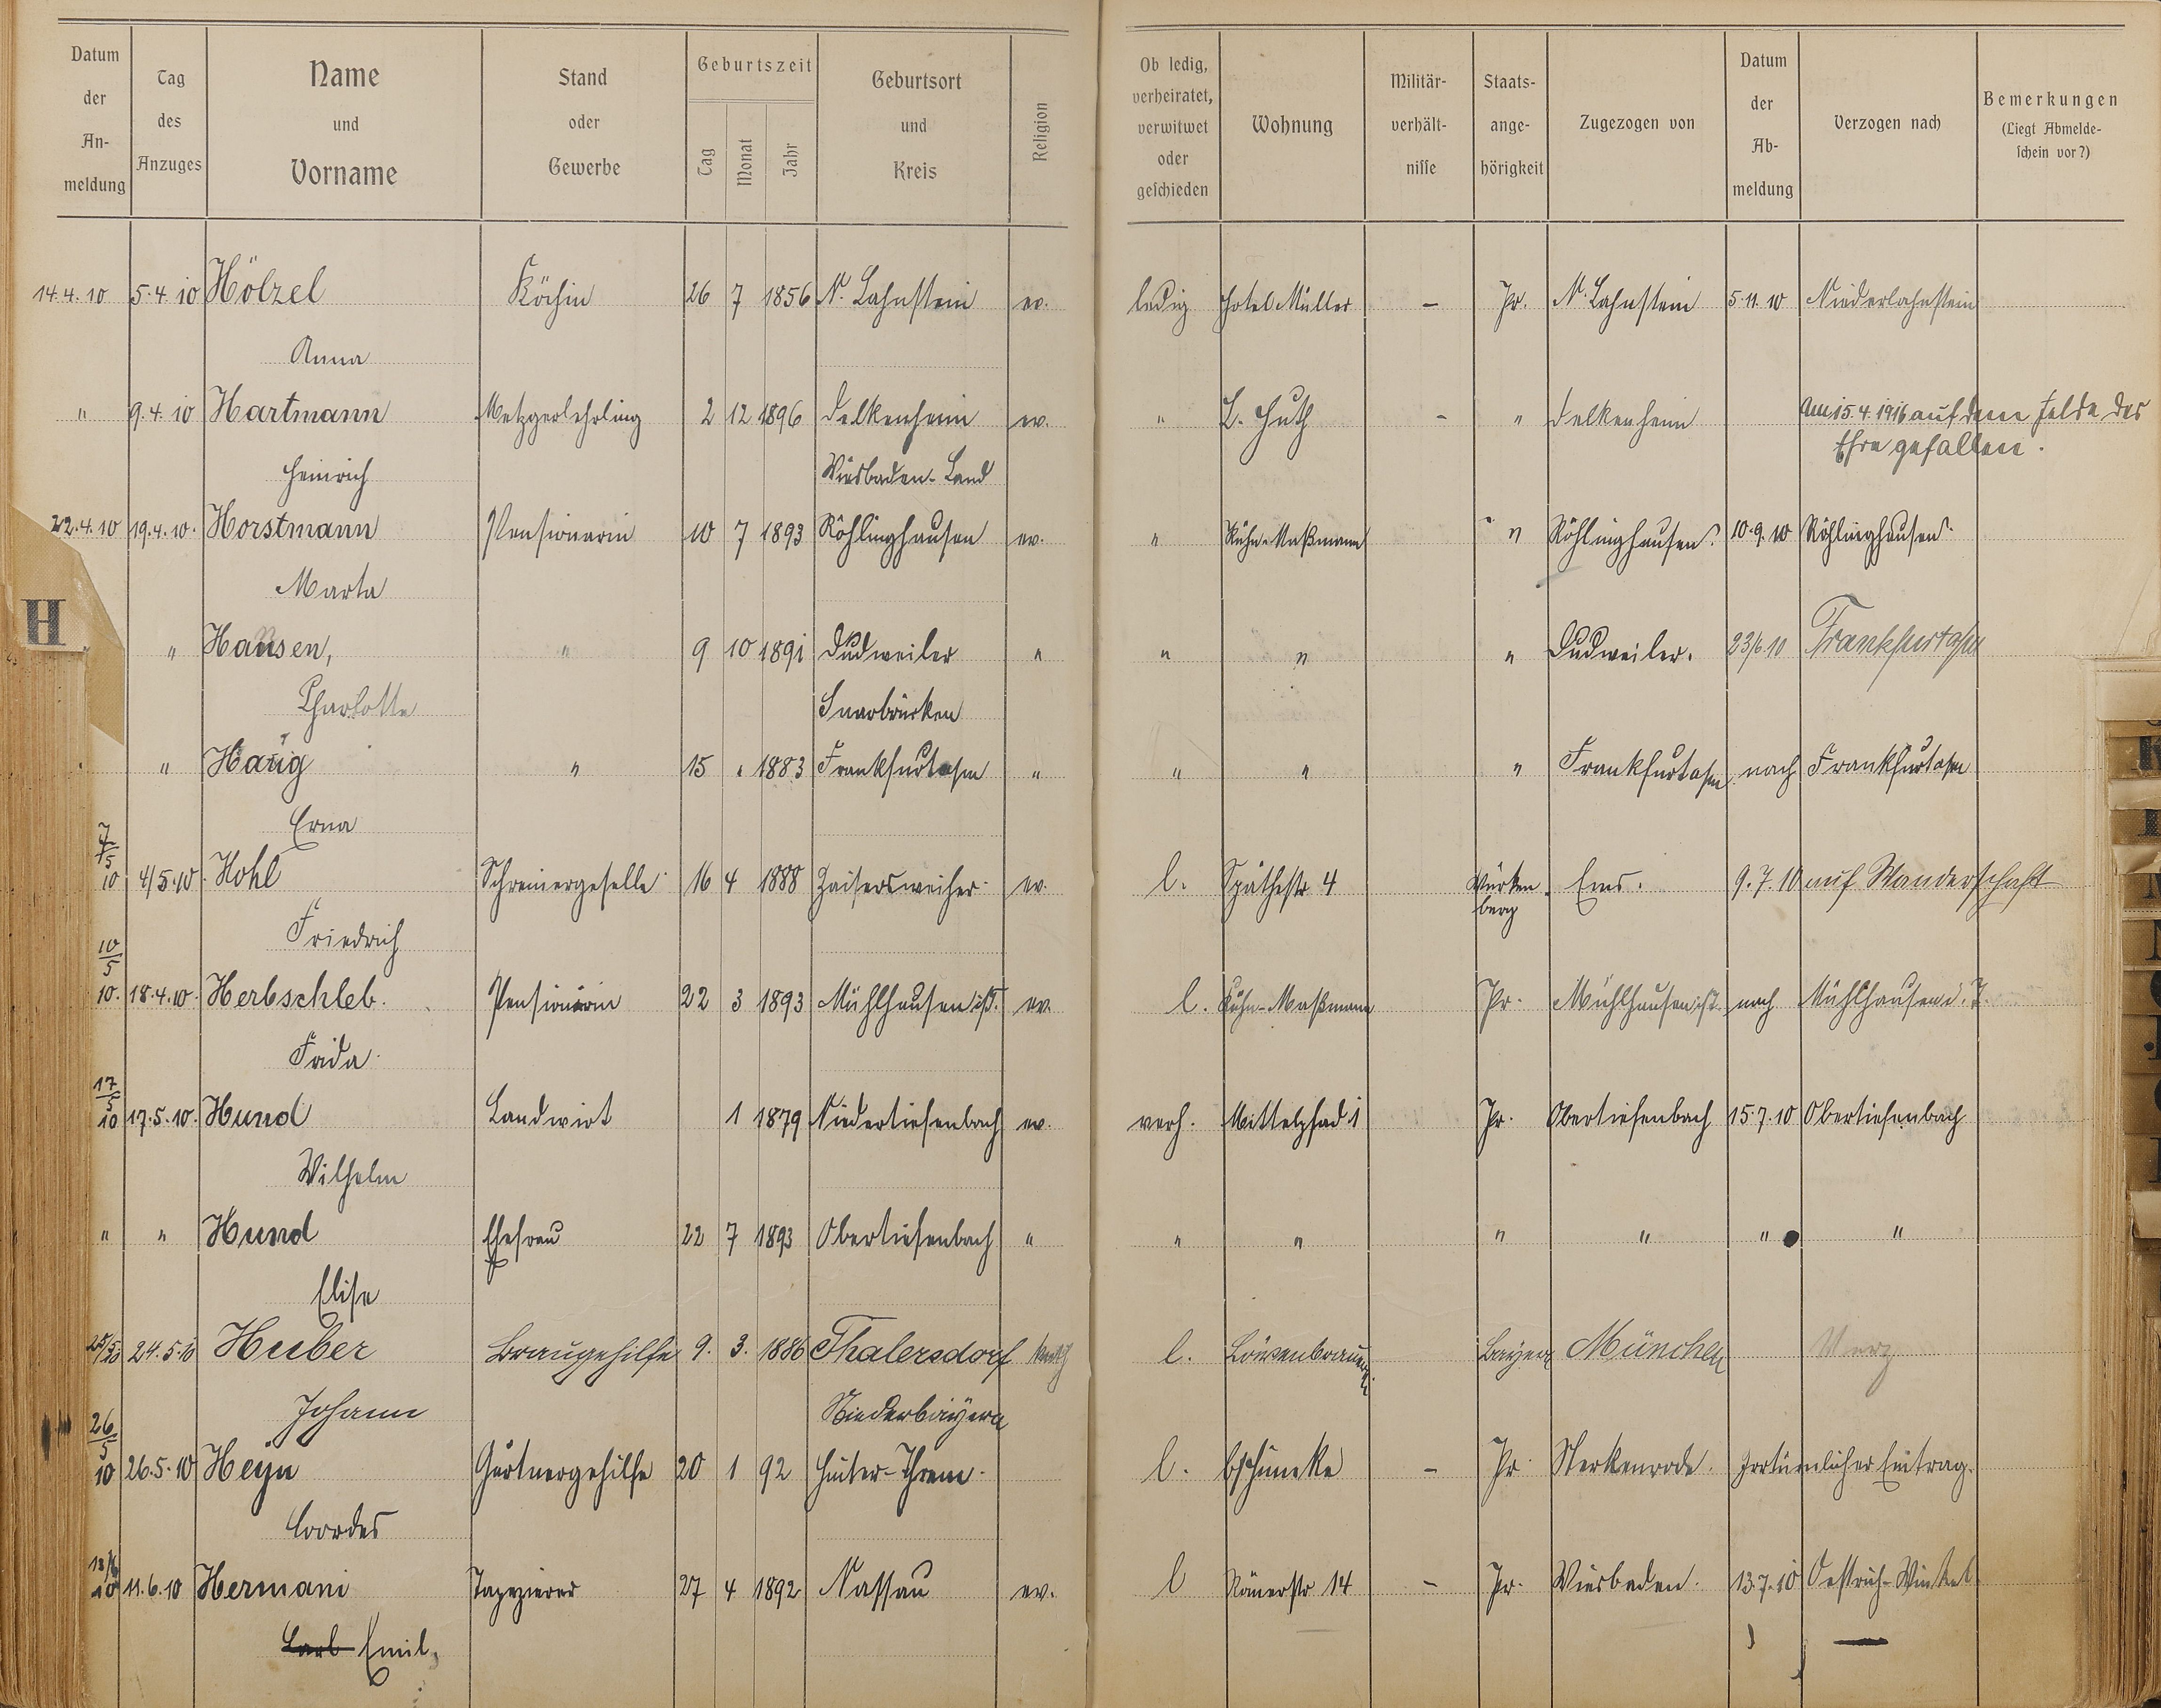 Datum der An- meldung
Tag des Anzuges
Name und Vorname
Stand oder Gewerbe
Geburtszeit
Tag Monat Jahr
Geburtsort und Kreis
Religion
Ob ledig, verheiratet, verwitwet oder geschieden
Wohnung
Militär- verhält- nisse
Staats- ange- hörigkeit
Zugezogen von
Datum der Ab- meldung
Verzogen nach
Bemerkungen (Liegt Abmelde- schein vor?)
14.4.10 5.4.10 Hölzel Köchin 26 7 1856 N. Lahnstein ev. ledig Hotel Müller - Pr. N. Lahnstein 5.11.10 Niederlahnstein
Anna
" 9.4.10 Hartmann Metzgerlehrling 2 12 1896 Delkenheim ev. " L. Huth - " Delkenheim Am 15.4.1916 auf dem Felde der
Ehre gefallen.
Heinrich Wiesbaden-Land
22.4.10 19.4.10. Horstmann Pensionärin 10 7 1893 Röhlinghausen ev. " Kühn-Maßmann " Röhlinghausen 10.9.10 Röhlinghausen
Marta
H
" Hansen, " 9 10 1891 Dudweiler " " " " Dudweiler. 23/6.10 Frankfurt a/M
Charlotte Saarbrücken
" Haüg " 15 " 1883 Frankfurt a/M " " " " Frankfurt a/M nach Frankfurt a/M
Erna
7/5 10 4/5.10. Hohl Schreinergeselle 16 4 1888 Zaisersweiher ev. l. Späthestr 4 Würtem- berg Ems. 9.7.10 auf Wanderschaft
Friedrich
10/5 10. 18.4.10. Herbschleb. Pensionärin 22 3 1893 Mühlhausen i/T. ev. l. Kühn-Maßmann Pr. Mühlhausen i/T. nach Mühlhausen i. T.
Frida
17/5 10 17.5.10. Hund Landwirt 1 1879 Niedertiefenbach ev. verh. Mittelpfad 1 Pr. Obertiefenbach 15.7.10 Obertiefenbach
Wilhelm
" " Hund Ehefrau 22 7 1893 Obertiefenbach " " " " " " "
Elise
25/5 10 24.5.10 Huber Braugehilfe 9. 3. 1886 Thalersdorf kath l. Löwenbrauerei Bayern München Verz
Johann Niederbayern
26/5 10 26.5.10 Heyn Gärtnergehilfe 20 1 92 l. - Pr. Irrtümlicher Eintrag.
Coordes
13/6 10 11.6.10 Hermani Tapezierer 27 4 1892 Nassau ev. l Römerstr 14 - Pr. Wiesbaden. 13.7.10 Oestrich-Winkel
Karl Emil,